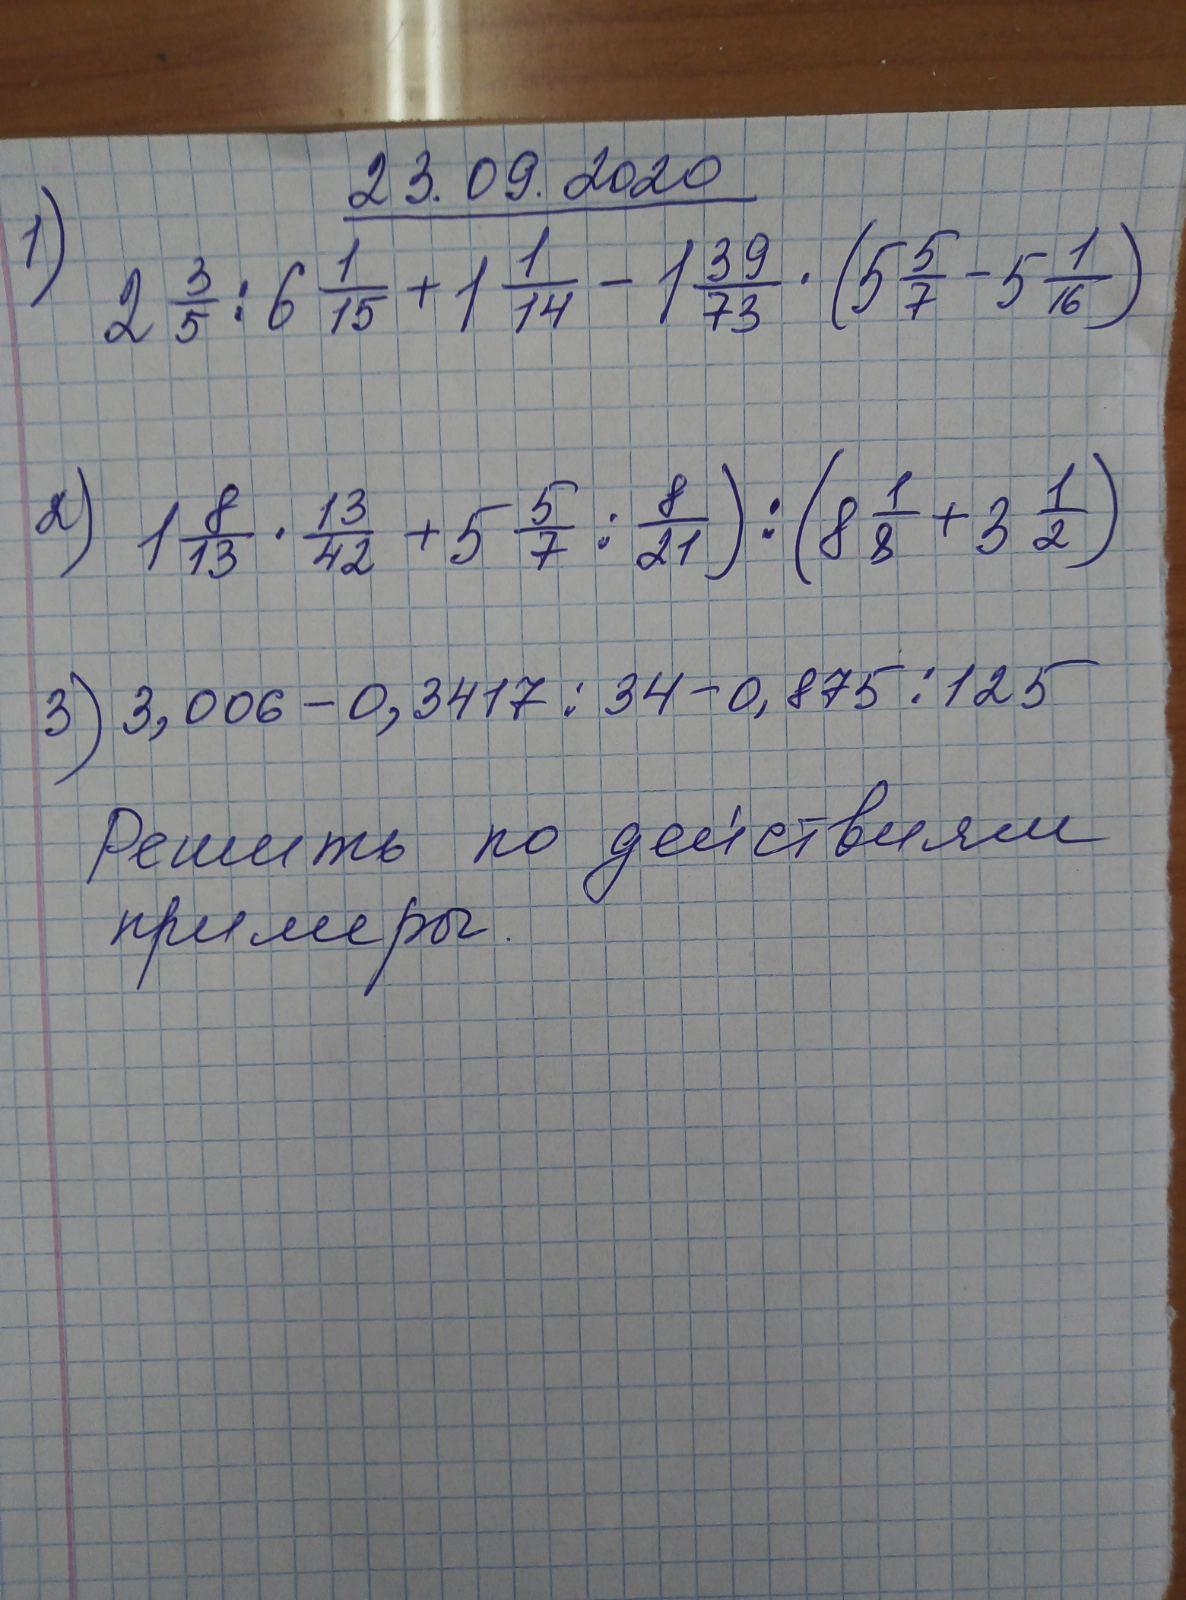 23.09.2020
1) 2 3/5 : 6 1/15 + 1 1/14 - 1 39/73 · (5 5/7 - 5 1/16)
2) 1 8/13 · 13/42 + 5 5/7 : 8/21) : (8 1/8 + 3 1/2)
3) 3,006 - 0,3417 : 34 - 0,875 : 125
Решить по действиям
примеры.